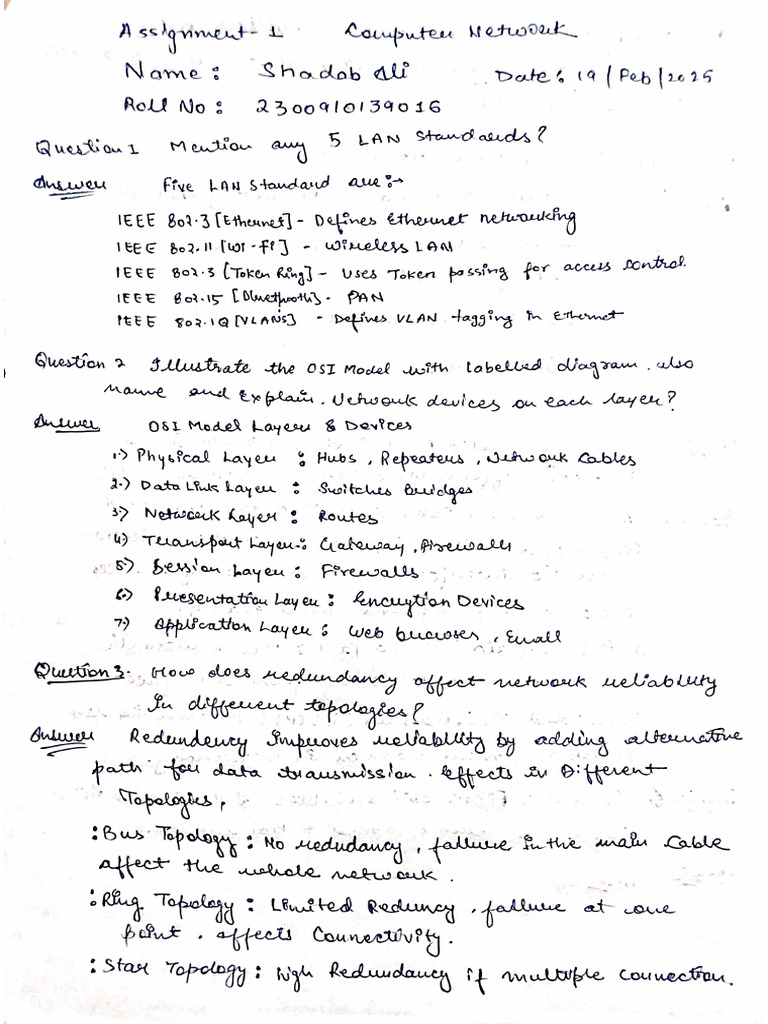 Assignment-1 Computer Network
Name: Shadab Ali Date: 19/Feb/2025
Roll No: 2300910139016
Question 1 Mention any 5 LAN Standards?
Answer Five LAN Standard are:-
IEEE 802.3 [Ethernet] - Defines Ethernet networking
IEEE 802.11 [Wi-Fi] - Wireless LAN
IEEE 802.3 [Token Ring] - Uses Token passing for access control.
IEEE 802.15 [Bluetooth] - PAN
IEEE 802.1Q [VLANs] - Defines VLAN tagging in Ethernet
Question 2 Illustrate the OSI Model with labelled diagram. also
name and Explain. Network devices on each layer?
Answer OSI Model Layers & Devices
1.) Physical Layer : Hubs, Repeaters, Network Cables
2.) Data Link Layer : Switches Bridges
3.) Network Layer : Routes
4.) Transport Layer : Gateway, Firewalls
5.) Session Layer : Firewalls
6.) Presentation Layer : Encrytion Devices
7.) Application Layer : Web browser, Email
Question 3. How does redundancy affect network reliability
in different topologies?
Answer Redundency improves reliability by adding alternative
path for data transmission. Effects in Different
Topologies,
: Bus Topology : No redudancy, failure in the main cable
affect the whole network.
: Ring Topology : Limited Reduncy, failure at one
point. affects Connectivity.
: Star Topology : High Redundancy if multiple connection.